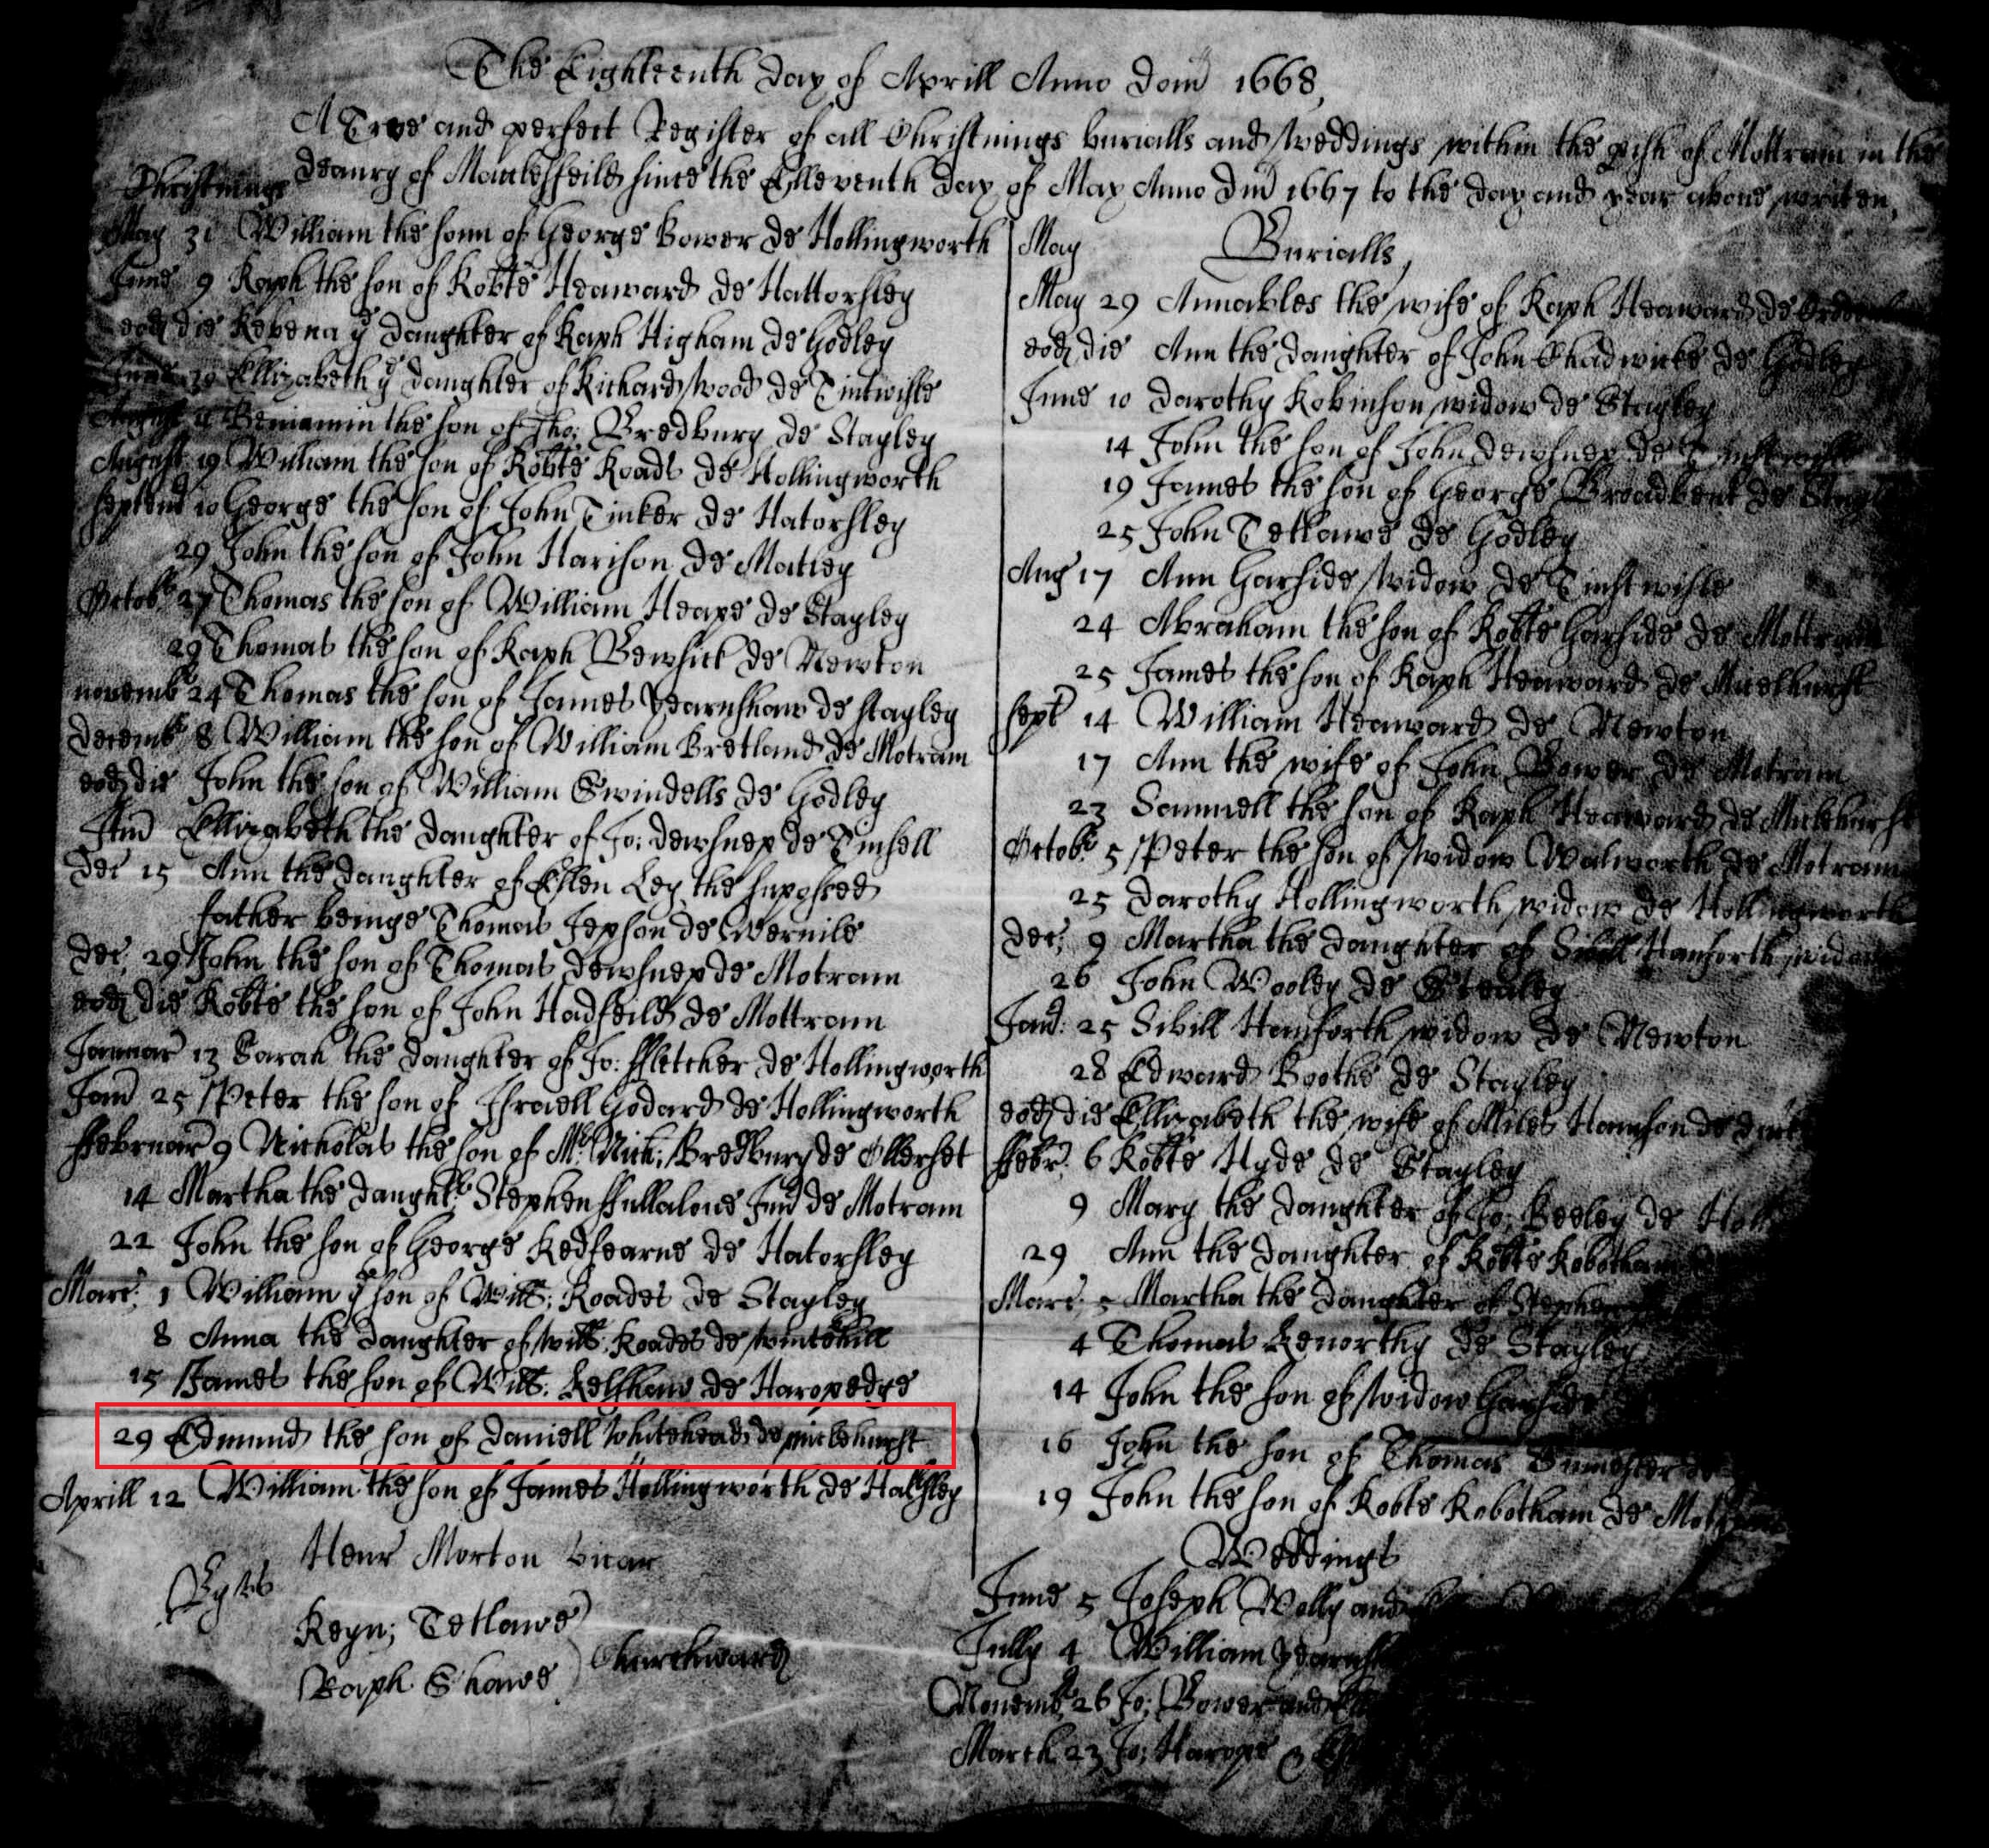 The Eighteenth day of Aprill Anno Dom 1668,
A Trve and perfect Register of all Christnings burialls and weddings within the pish of Mottram in the
deanry of Mackesfeild since the Elleventh day of May Anno Dm 1667 to the day and year above writen,
Christnings
May 31 William the sonn of George Bower de Hollingworth
June 9 Raph the son of Robte Heaward de Hattorsley
eod die Rebena ye daughter of Raph Higham de Godley
June 30 Ellizabeth ye daughter of Richard Wood de Tintwisle
August 11 Beniamin the son of Tho: Bredbury de Stayley
August 19 William the son of Robte Roads de Hollingworth
Septem 10 George the son of John Tinker de Hatorsley
29 John the son of John Harison de Matley
Octob: 27 Thomas the son of William Heape de Stayley
29 Thomas the son of Raph Bewsick de Newton
novemb 24 Thomas the son of James Yearnshaw de stayley
decemb 8 William the son of William Bretland de Motram
eod die John the son of William Swindells de Godley
Itm Ellizabeth the daughter of Jo: dewsnep de Tinsell
dec 15 Ann the daughter of Ellen Ley the suposed
father beinge Thomas Jepson de Wernile
dec: 29 John the son of Thomas dewsnep de Motram
eod die Robte the son of John Hadfeild de Mottram
Januar 13 Sarah the daughter of Jo: ffletcher de Hollingworth
Jan 25 Peter the son of Israell Godard de Hollingworth
ffebruar 9 Nicholas the son of Mr Nich: Bredbury de Ollerset
14 Martha the daught: Stephen ffullalove Jun de Motram
22 John the son of George Redfearne de Hatorsley
Marc: 1 William ye son of Will: Roades de Stayley
8 Anna the daughter of Will: Roades de
15 James the son of Will: Kelshaw de Haropedge
29 Edmund the son of Daniell Whitehead de micklehurst
Aprill 12 William the son of James Hollingworth de
Henr Morton vicar
Reyn: Tetlawe
Raph Shawe
Churchward
May Burialls,
May 29 Annables the wife of Raph Heaward de
eod die Ann the daughter of John Chadwicke de Godley
June 10 Darothy Robinson widow de Stayley
14 John the son of John dewsnep de Tinstwisle
19 James the son of George Broadbent de
25 John Tetlawe de Godley
Aug 17 Ann Garside widow de Tinstwisle
24 Abraham the son of Robte Garside de Mottram
25 James the son of Raph Heaward de
Sept 14 William Heaward de Newton
17 Ann the wife of John Bower de Motram
23 Samuell the son of Raph Heaward de
Octob: 5 Peter the son of widow Walworth de Motram
25 Darothy Hollingworth widow de Hollingworth
dec: 9 Martha the daughter of Sibill Hanforth widow
26 John Wooley de
Jan: 25 Sibill Hanforth widow de Newton
28 Edward Boothe de Stayley
eod die Ellizabeth the wife of Miles Hamson de
ffebr: 6 Robte Hyde de Stayley
9 Mary the daughter of Jo: Beeley de
29 Ann the daughter of Robte Robotham
Marc: Martha the daughter of Stephen
4 Thomas Kenorthy de Stayley
14 John the son of widow Garside
16 John the son of Thomas
19 John the son of Robte Robotham de
Weddings
June 5 Joseph Wolly and
Jully 4 William
Novemb: 26 Jo: Bower and
March 23 Jo: Harope &